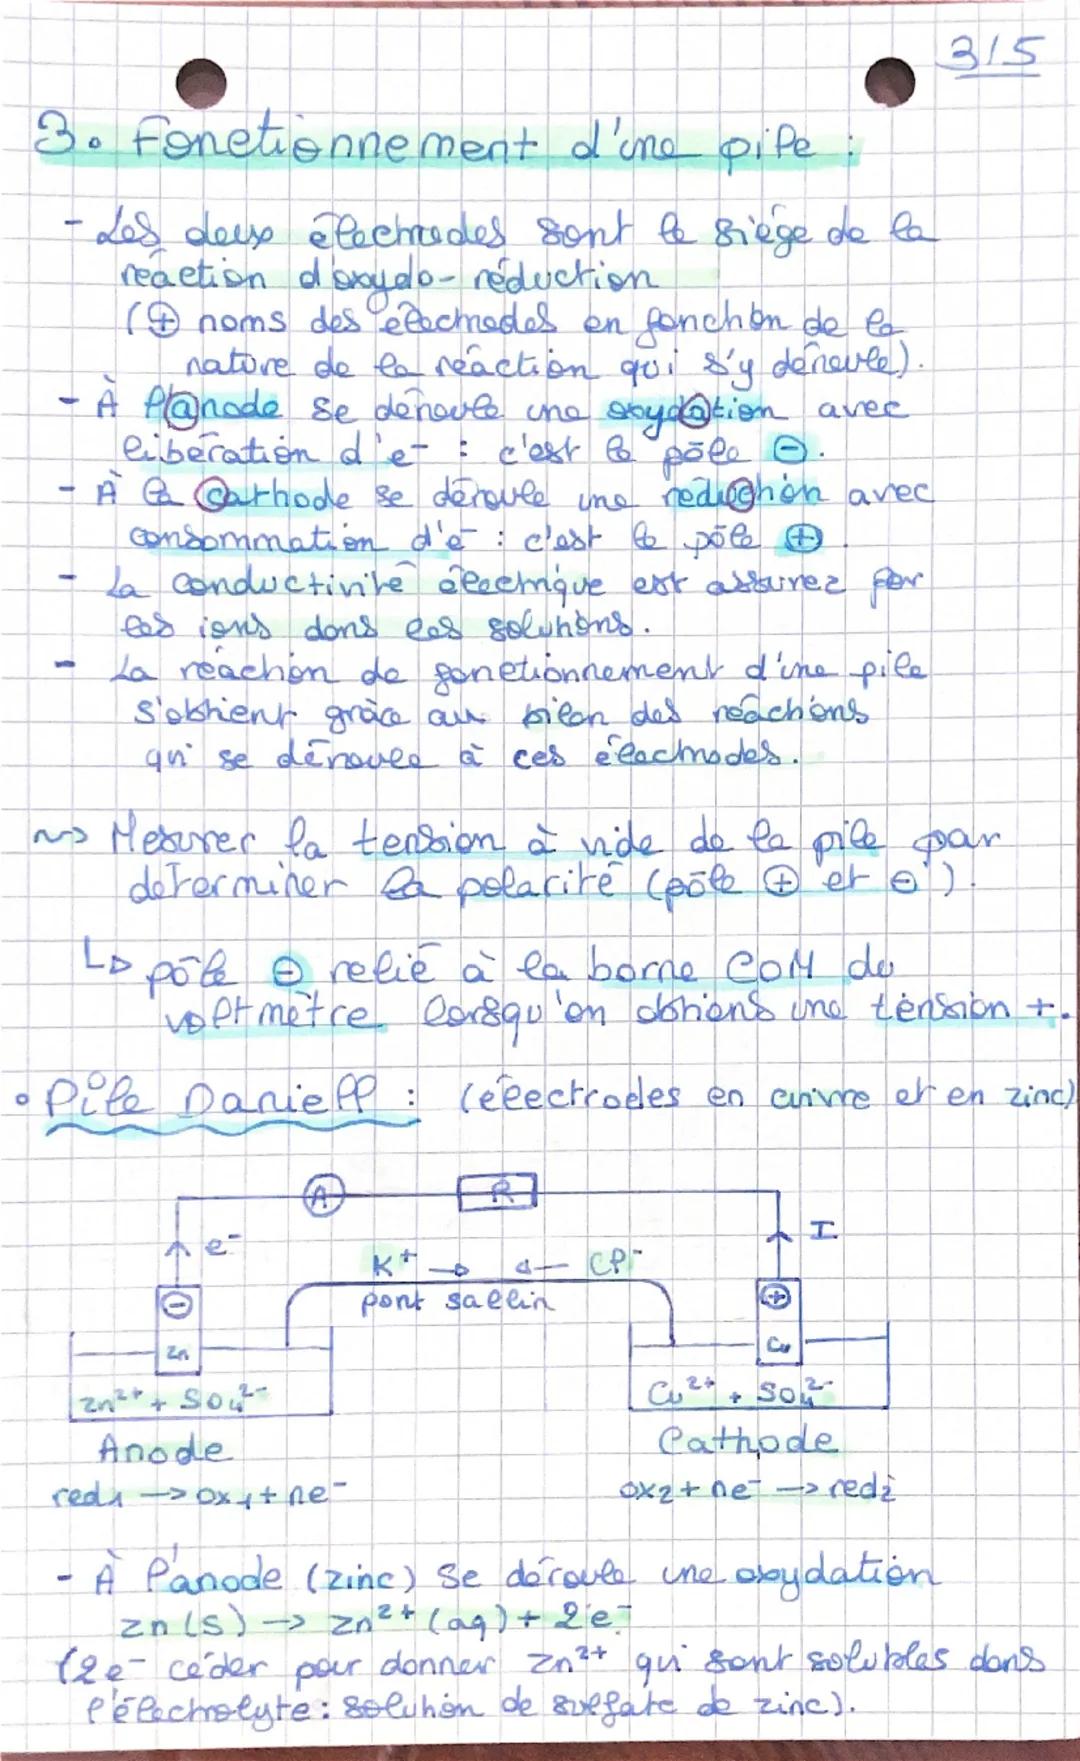 3/5
3. Fonctionnement d'une pile :
- Les deux électrodes sont le siège de la
réaction d'oxydo-réduction
(⊕ noms des électrodes en fonction de la
nature de la réaction qui s'y déroule).
- À l'anode se déroule une oxydation avec
libération d'e⁻ : c'est le pôle ⊖.
- À la cathode se déroule une réduction avec
consommation d'e⁻ : c'est le pôle ⊕.
- La conductivité électrique est assurez par
les ions dans les solutions.
- La réaction de fonctionnement d'une pile
s'obtient grâce au bilan des réactions
qui se déroule à ces électrodes.
~> Mesurer la tension à vide de la pile par
determiner la polarité (pôle ⊕ et ⊖).
↳ pôle ⊖ relié à la borne COM du
voltmètre lorsqu'on obtiens une tension +.
• Pile Daniell : (électrodes en cuivre et en zinc)
A R
e⁻ I
K⁺ → ← Cl⁻
pont sallin
⊖ ⊕
Zn Cu
Zn²⁺ + SO₄²⁻ Cu²⁺ + SO₄²⁻
Anode Cathode
red1 → ox1 + ne⁻ ox2 + ne⁻ → red2
- À l'anode (zinc) se déroule une oxydation
Zn(s) → Zn²⁺(aq) + 2e⁻
(2e⁻ céder pour donner Zn²⁺ qui sont solubles dans
l'électrolyte : solution de sulfate de zinc).